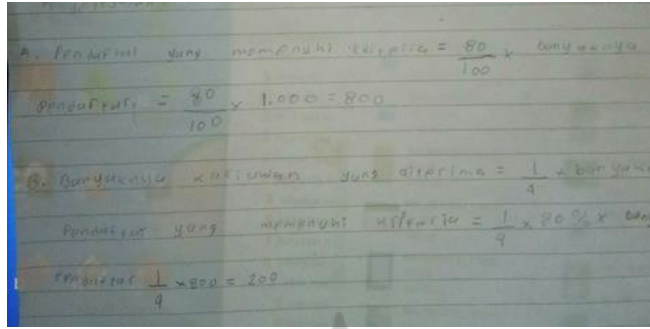 A. Pendaftar yang memenuhi kriteria = 80/100 x banyaknya
Pendaftar = 80/100 x 1.000 = 800
B. Banyaknya kariawan yang diterima = 1/4 x banyak
Pendaftar yang memenuhi kriteria = 1/4 x 80% x ban
Pendaftar 1/4 x 800 = 200